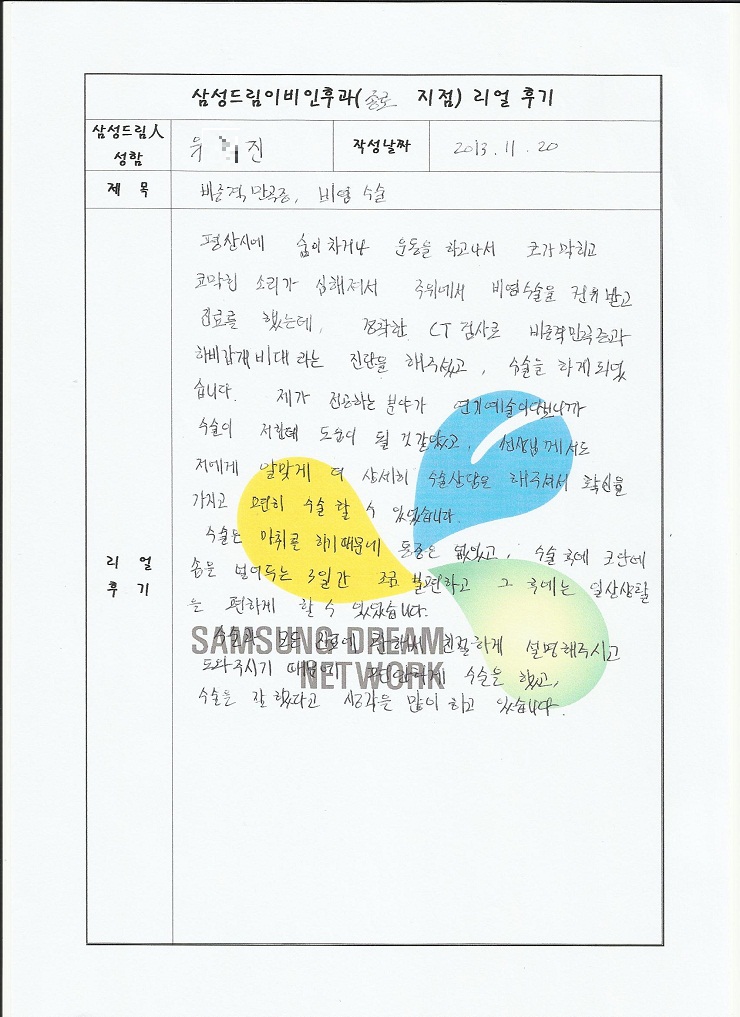 삼성드림이비인후과(종로 지점) 리얼 후기
삼성드림人 성함
유 진
작성날짜
2013. 11. 20
제 목
비중격만곡증, 비염 수술
리 얼 후 기
평상시에 숨이 차거나 운동을 하고나서 코가 막히고
코막힌 소리가 심해져서 주위에서 비염수술을 권유 받고
진료를 했는데, 정확한 CT 검사로 비중격만곡증과
하비갑개비대 라는 진단을 해주셨고, 수술을 하게되었
습니다. 제가 전공하는 분야가 연기예술이다보니까
수술이 저한테 도움이 될 것같았고, 선생님께서도
저에게 알맞게 더 상세히 수술상담을 해주셔서 확신을
가지고 편히 수술 할 수 있었습니다.
수술은 마취를 하기때문에 통증은 없었고, 수술 후에 코안에
솜을 넣어두는 3일간 조금 불편하고 그 후에는 일상생활
을 편하게 할 수 있었습니다.
수술과 모든 진료에 관해서 친절하게 설명해주시고
도와주시기 때문에 편안하게 수술을 했고,
수술을 잘 했다고 생각을 많이 하고 있습니다.
SAMSUNG DREAM
NETWORK